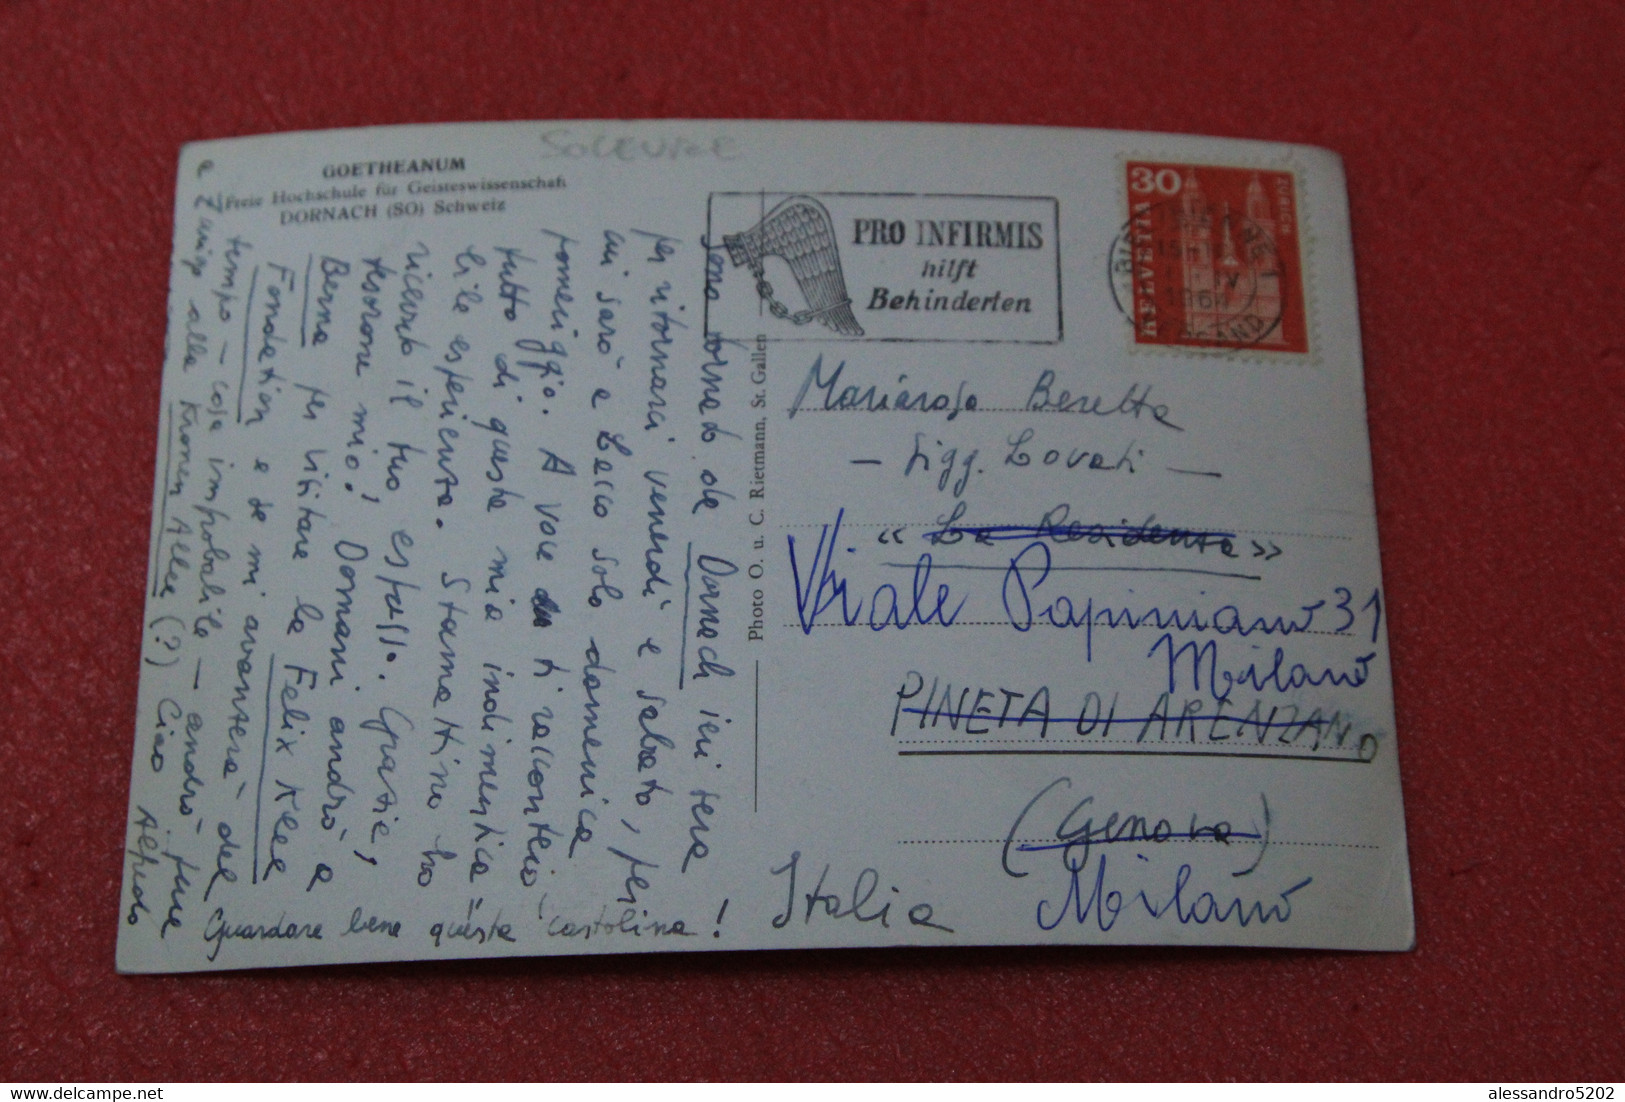 SOLEURE
GOETHEANUM
Freie Hochschule für Geisteswissenschaft
DORNACH (SO) Schweiz
PRO INFIRMIS
hilft
Behinderten
30
HELVETIA
ZÜRICH
Photo O. u. C. Rietmann, St. Gallen
Sono tornato da Dornach ieri sera
per ritornarci venerdì e sabato, per
cui sarò a Lecco solo domenica
pomeriggio. A voce ti racconterò
tutto di questa mia indimentica-
bile esperienza. Stamattina ho
ricevuto il tuo espresso. Grazie,
tesoro mio! Domani andrò a
Berna per visitare la Felix Klee
Fondation e se mi avanzerà del
tempo - cosa improbabile - andrò pure
a Zurigo alla Kronen Allee (?) Ciao Alfredo
Guardare bene questa cartolina!
Mariarosa Beretta
- Sigg. Lovati -
"La Residenza"
Viale Papiniano 31
Milano
PINETA DI ARENZANO
(Genova)
Milano
Italia
alessandro5202